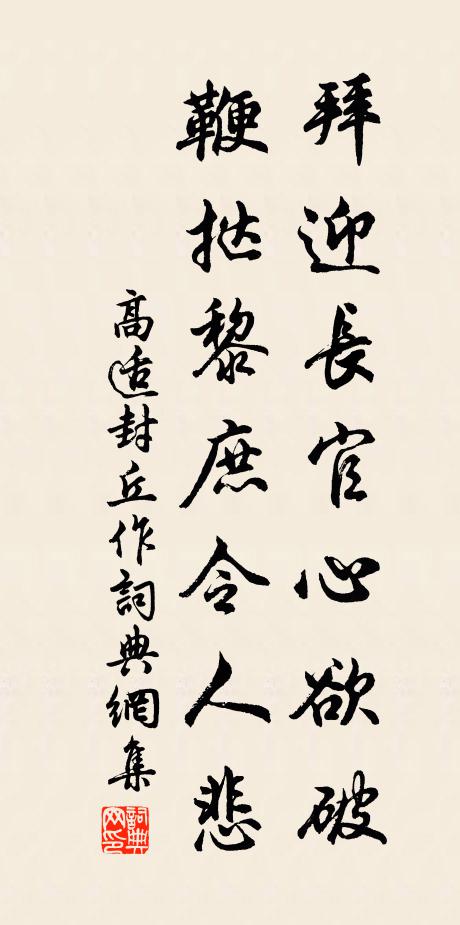 拜迎長官心欲破
鞭挞黎庶令人悲
高适封丘作詞典網集
詞典網印